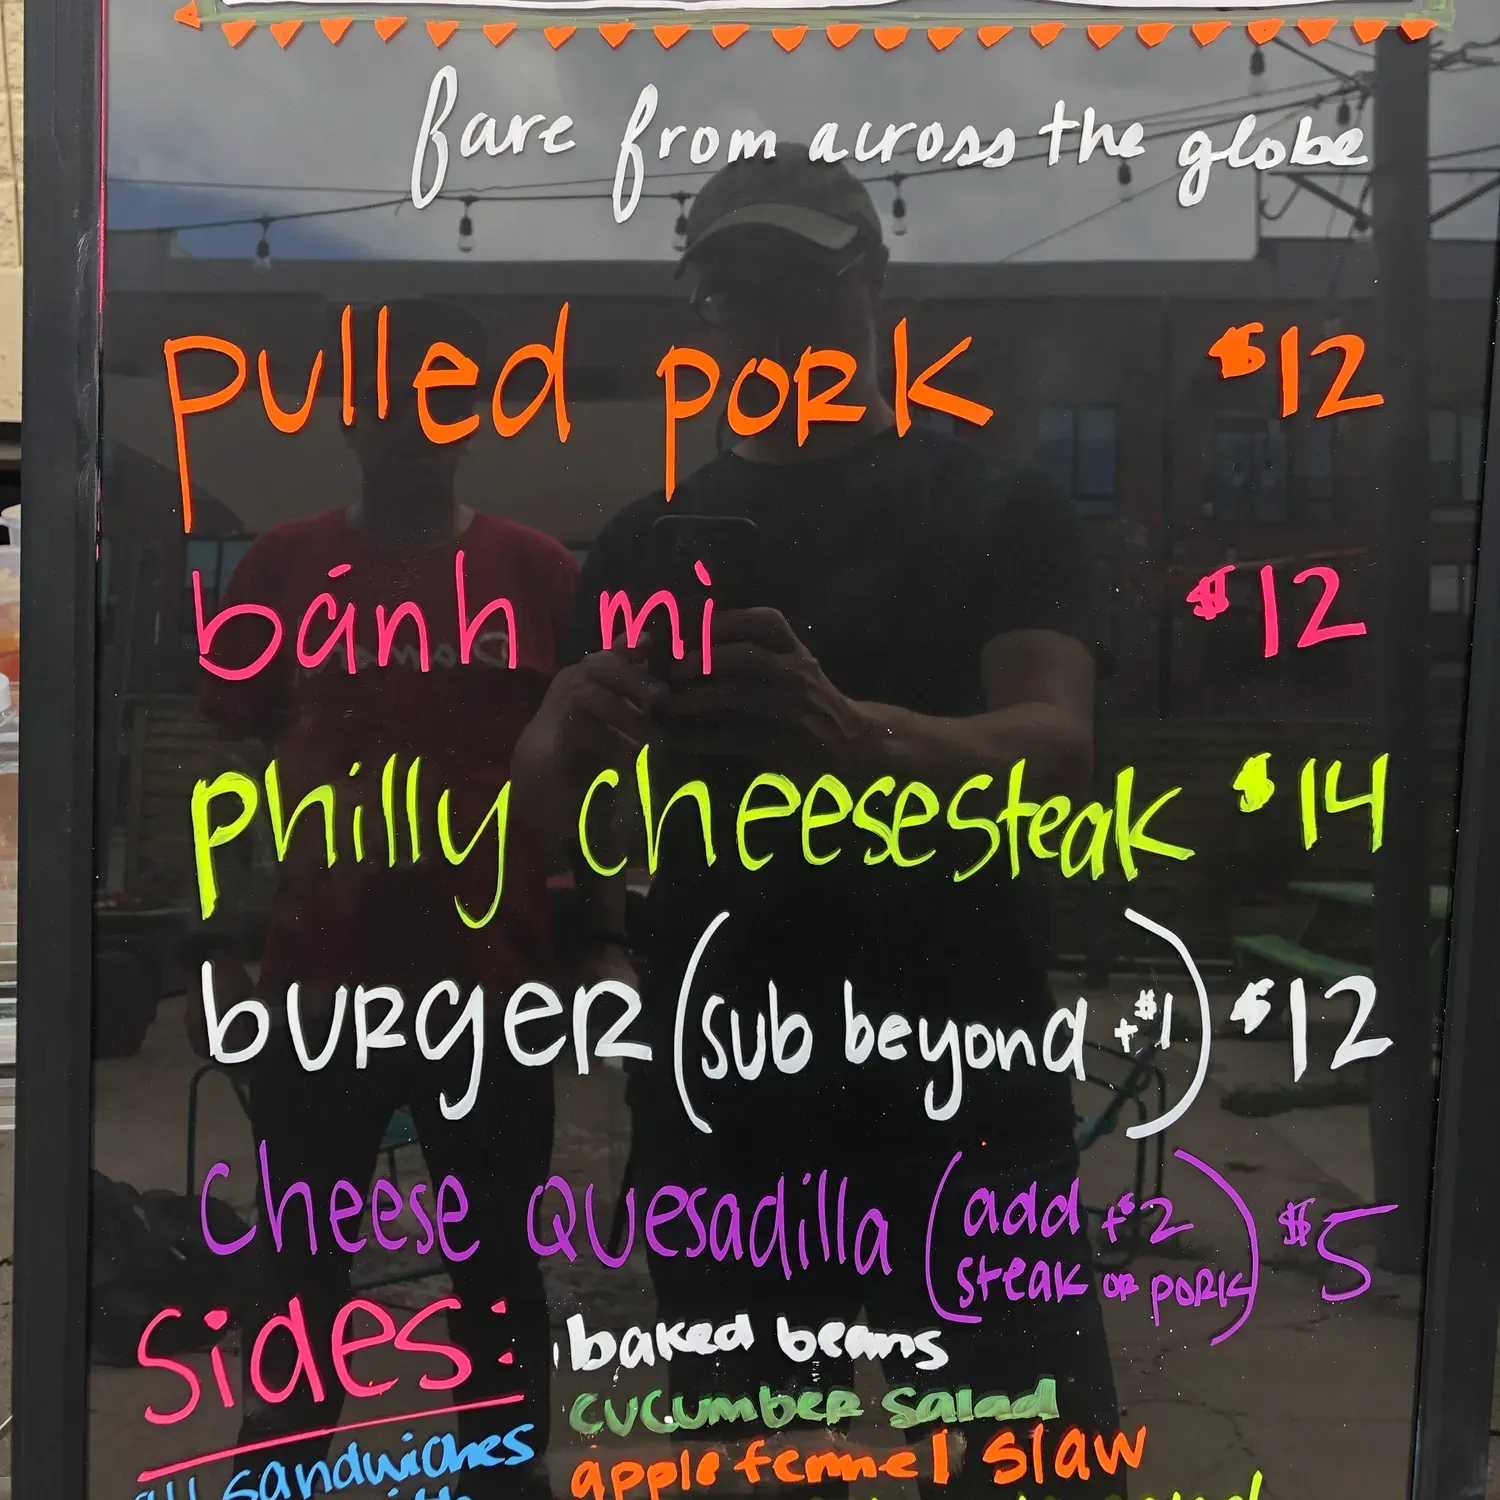 fare from across the globe
pulled pork $12
bánh mì $12
philly cheesesteak $14
burger (sub beyond +$1) $12
cheese quesadilla (add +$2 steak or pork) $5
sides:
baked beans
cucumber salad
apple fennel slaw
all sandwiches